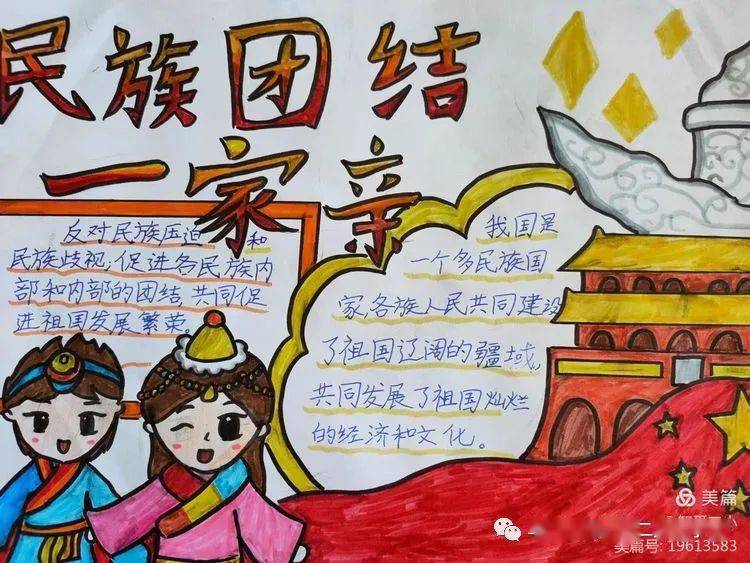 民族团结
一家亲
反对民族压迫和
民族歧视,促进各民族内
部和内部的团结,共同促
进祖国发展繁荣。
我国是
一个多民族国
家,各族人民共同建设
了祖国辽阔的疆域,
共同发展了祖国灿烂
的经济和文化。
美篇
美篇号: 19613583